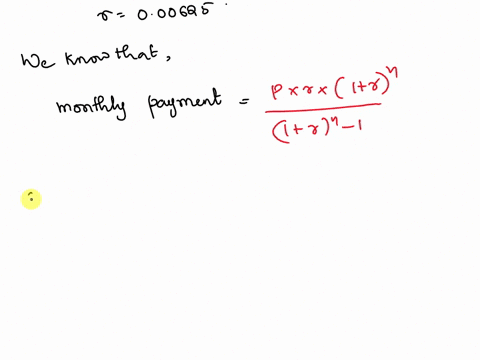 r = 0.00625.
We know that,
monthly payment = P × r × (1+r)^n / (1+r)^n - 1